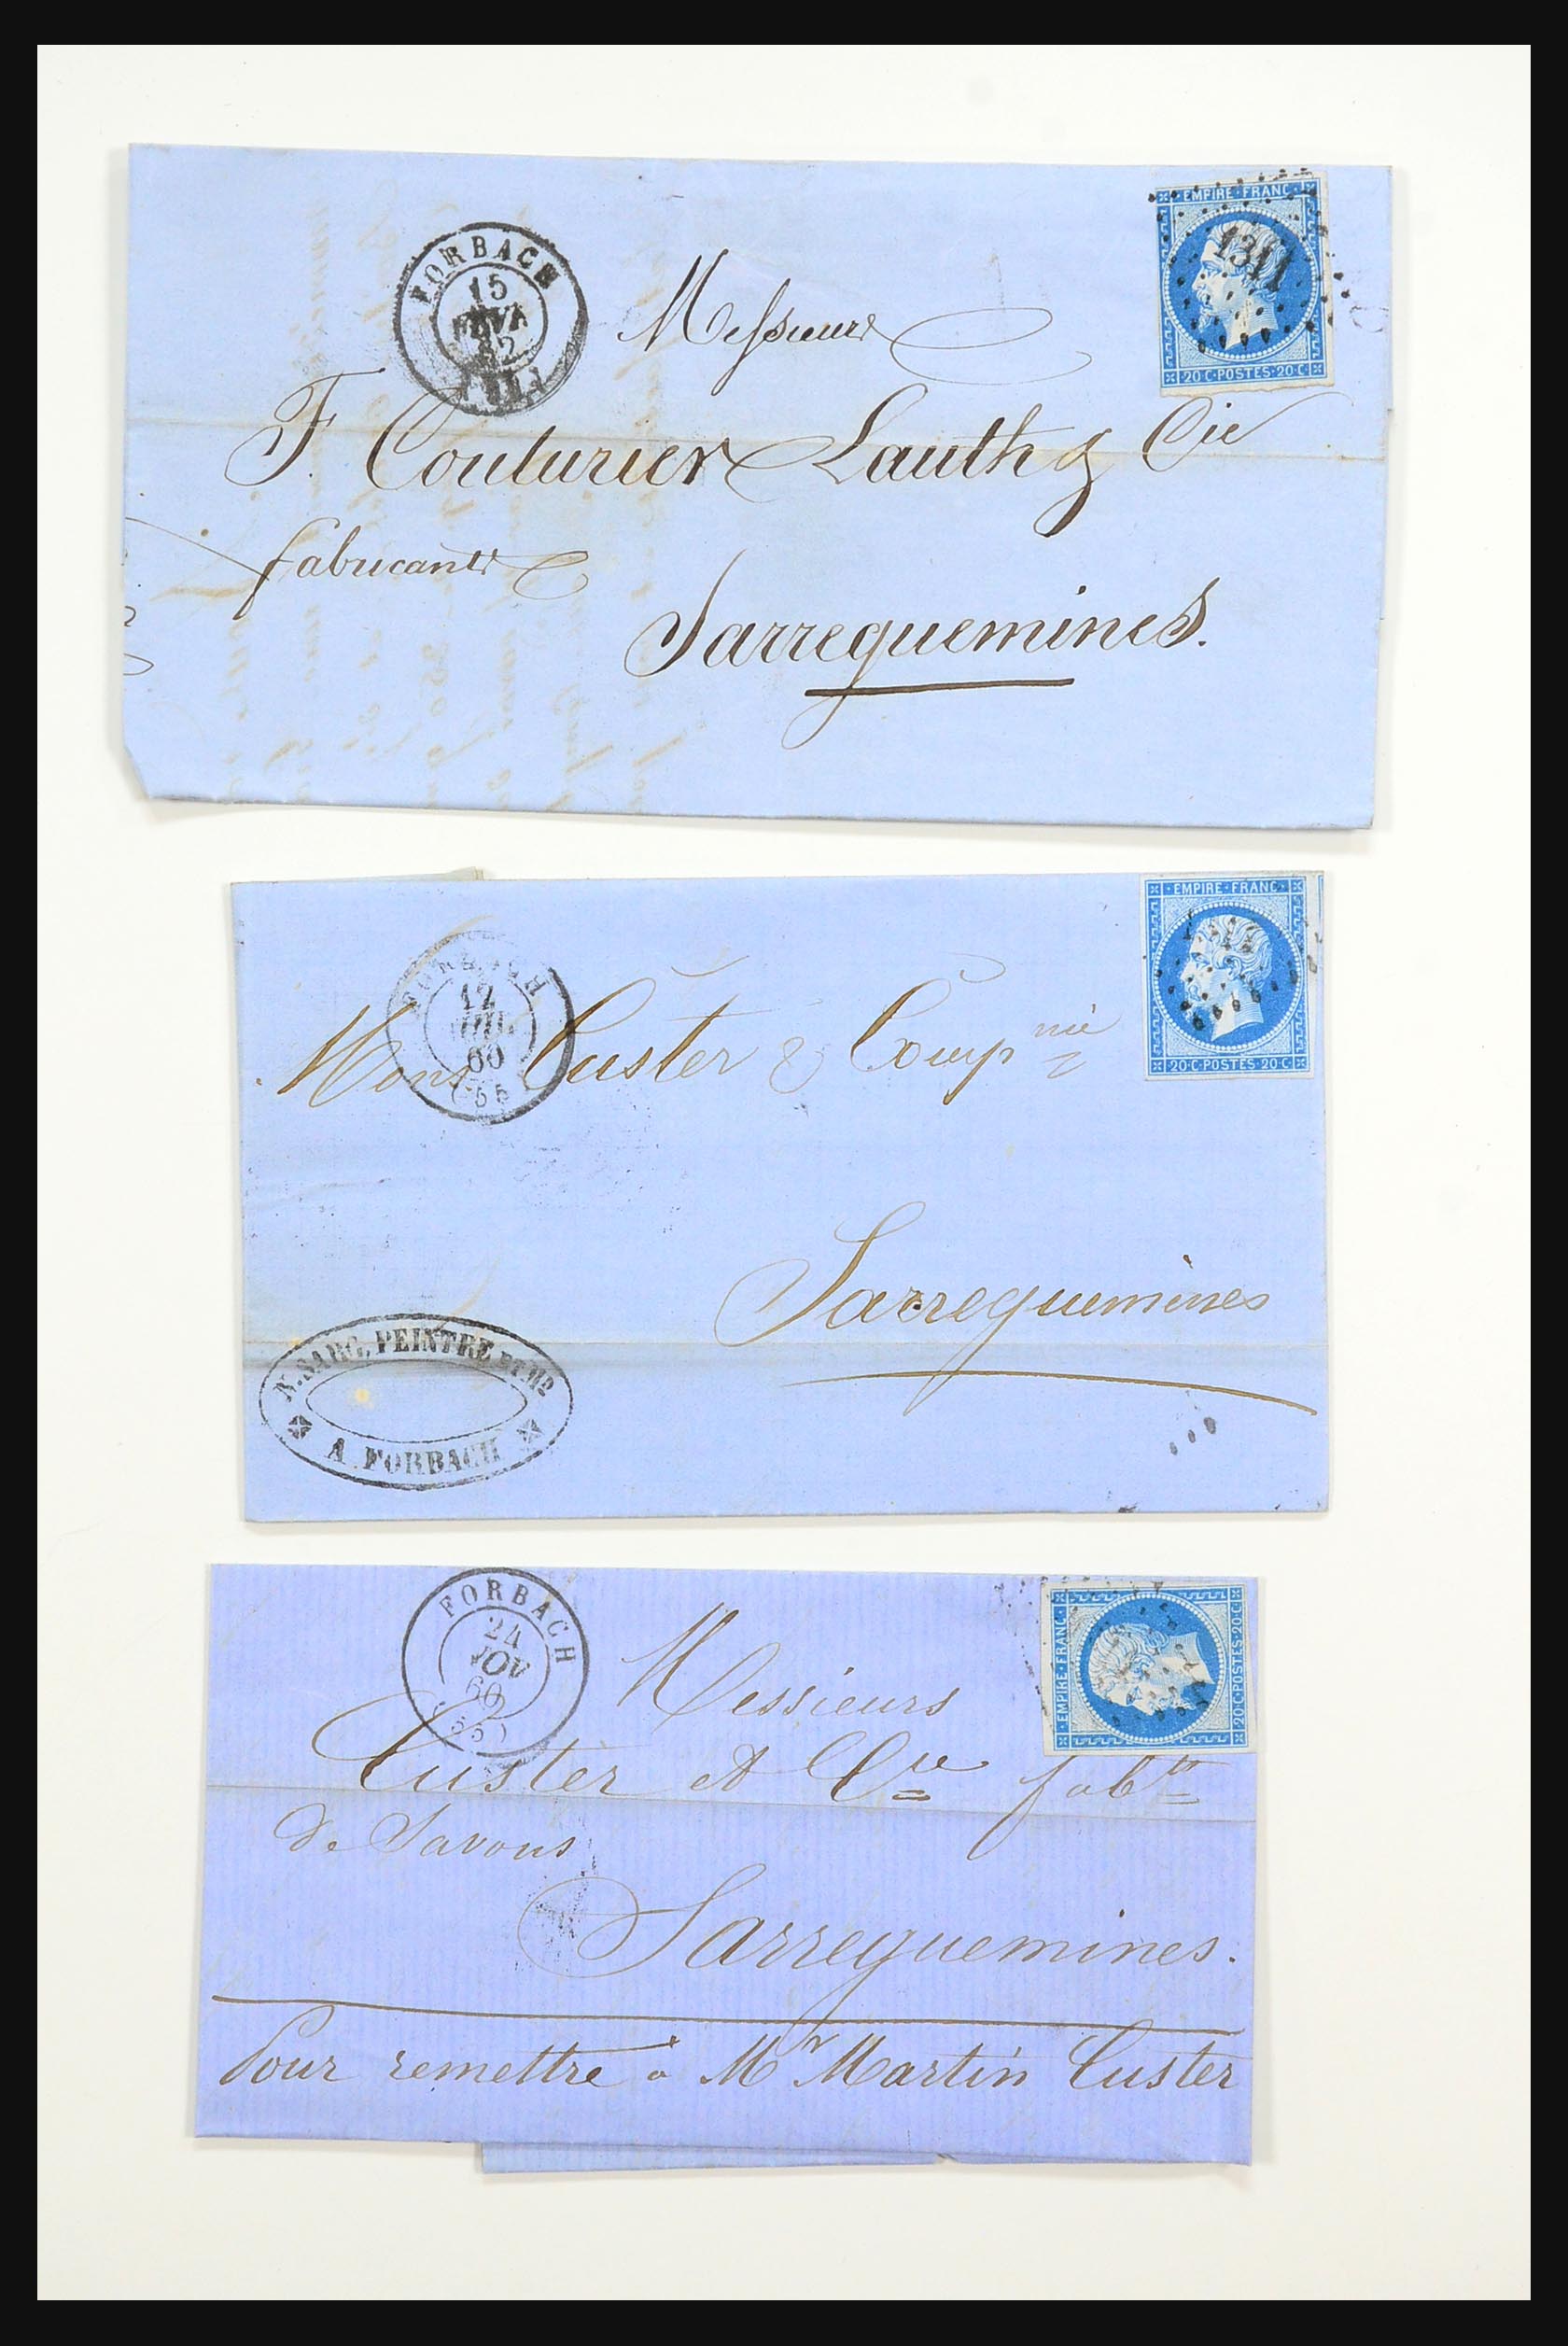 FORBACH
15
62
EMPIRE · FRANC ·
1311
20 · C · POSTES · 20 · C ·
Messieurs
F. Couturier Lauth & Cie
fabricants
Sarreguemines.
FORBACH
12
JUIL
60
(55)
EMPIRE · FRANC ·
20 · C · POSTES · 20 · C ·
Mons Custer & Compnie
Sarreguemines
N. SARG, PEINTRE ET
A FORBACH
FORBACH
24
NOV
60
(55)
EMPIRE · FRANC ·
20 · C · POSTES · 20 · C ·
Messieurs
Custer et Cie fabts
de Savons
Sarreguemines.
Pour remettre à Mr Martin Custer